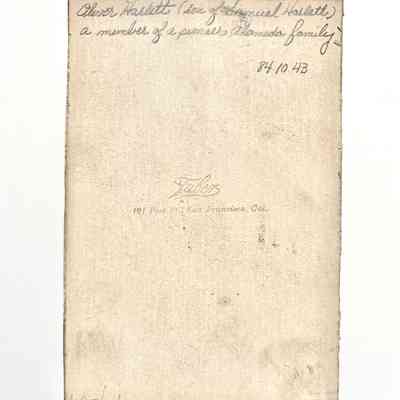 Oliver Haslett (son of Samuel Haslett)
a member of a pioneer Alameda family
84.10.43
Taber
121 Post St. San Francisco, Cal.